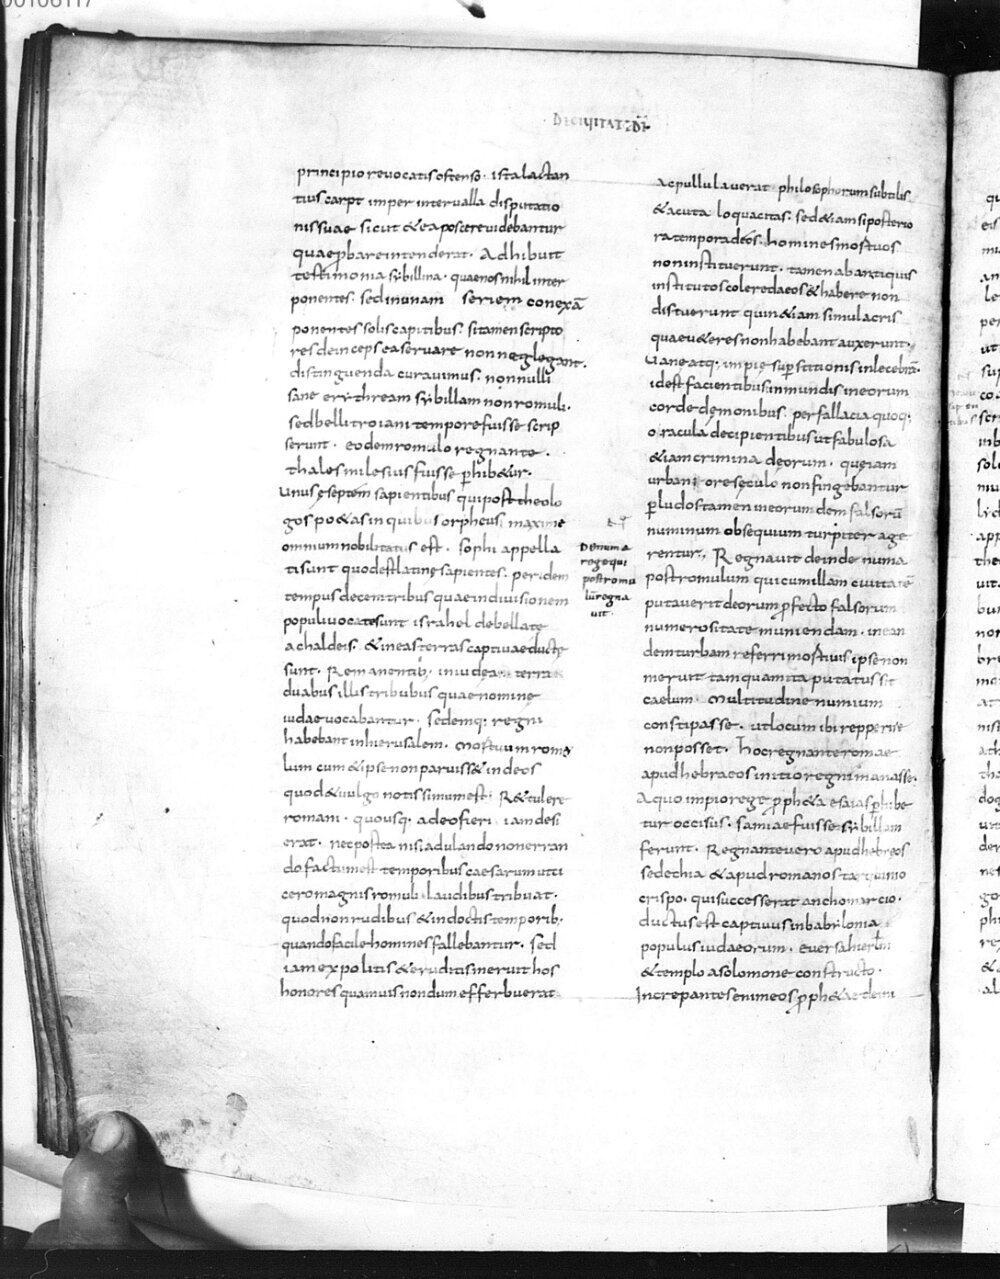 00106117
DECIUITATE DĪ
principio reuocatis ostenso. ista lactan
tius carpt imper interualla disputatio
nis suae sicut & ea poscere uidebantur
quae pbare intenderat. Adhibuit
testimonia sybillina. quae nos nihil inter
ponentes. sed in unam seriem conexā
ponentes solis capitibus. si tamen scripto
res deinceps ea seruare non neglegant.
distinguenda curauimus. nonnulli
sane erythream sybillam non romuli.
sed belli troiani tempore fuisse scrip
serunt. eodem romulo regnante.
thales milesius fuisse phib&ur.
unus e septem sapientibus qui post theolo
gos po&as in quibus orpheus maxime
omnium nobilitatus est. sophi appella
ti sunt quod est latine sapientes. per idem
tempus decem tribus quae in diuisionem
populi uocate sunt israhel debellate
a chaldeis. & in eas terras captiuae ducte
sunt. Remanentib; in iudea terra
duabus illis tribubus quae nomine
iudae uocabantur. sedemq; regni
habebant in hierusalem. mortuum romu
lum cum & ipse non paruiss& in deos
quod & uulgo notissimum est. R&tulere
romani. quousq; adeo fieri iam desi
erat. nec postea nisi adulando non erran
do factum est temporibus caesarum uti
cero magnis romuli laudibus tribuat.
quod non rudibus & indoctis temporib.
quando facile homines fallebantur. sed
iam expolitis & eruditis meruit hos
honores quamuis nondum efferbuerat
ac pullulauerat philosophorum subtilis
& acuta loquacitas. sed & iam si posterio
ra tempora deos. homines mortuos
non instituerunt. tamen ab antiquis
institutos colere da eos & habere non
distuerunt quin & iam simulacris
quae u&eres non habebant auxerunt.
uane atq; impie superstitionis inlecebrā.
id est facientibus inmundis in eorum
corde demonibus. per fallacia quoq;
oracula decipientibus ut fabulosa
& iam crimina deorum. que iam
urbaniore seculo non fingebantur
p ludos tamen in eorumdem falsorū
numinum obsequium turpiter age
rentur,, Regnauit deinde numa
post romulum qui cum illam ciuitatē
putauerit deorum pfecto falsorum
numerositate muniendam. in ean
dem turbam referri mortuus ipse non
meruit tamquam ita putatus sit
caelum multitudine numium
constipasse. ut locum ibi repperire
non posset. hoc regnante romae
apud hebraeos initio regni manasse.
A quo impio rege pph&a esaias phibe
tur occisus. samiae fuisse sybillam
ferunt. Regnante uero apud hebreos
sedechia & apud romanos tarquinio
crispo. qui successerat ancho marcio.
ductus est captiuus in babilonia
populus iudaeorum. euersa hierlm
& templo a solomone constructo.
Increpantes enim eos pph&ae de ini
De numa
rege qui
post romu
lū regna
uit.